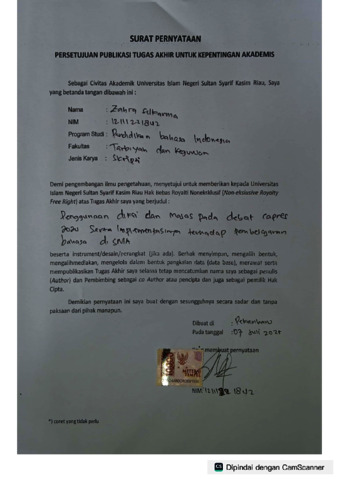 SURAT PERNYATAAN
PERSETUJUAN PUBLIKASI TUGAS AKHIR UNTUK KEPENTINGAN AKADEMIS
Sebagai Civitas Akademik Universitas Islam Negeri Sultan Syarif Kasim Riau, Saya
yang bertanda tangan dibawah ini :
Nama :
NIM :
Program Studi : Pendidikan bahasa Indonesia
Fakultas : Tarbiyah dan Keguruan
Jenis Karya : Skripsi
Demi pengembangan ilmu pengetahuan, menyetujui untuk memberikan kepada Universitas
Islam Negeri Sultan Syarif Kasim Riau Hak Bebas Royalti Noneksklusif (Non-eksclusive Royalty
Free Right) atas Tugas Akhir saya yang berjudul :
Penggunaan diksi dan pada debat capres
2024 Serta Implementasinya terhadap pembelajaran
bahasa di SMA
beserta instrument/desain/perangkat (jika ada). Berhak menyimpan, mengalih bentuk,
mengalihmediakan, mengelola dalam bentuk pangkalan data (data base), merawat serta
mempublikasikan Tugas Akhir saya selama tetap mencantumkan nama saya sebagai penulis
(Author) dan Pembimbing sebagai co Author atau pencipta dan juga sebagai pemilik Hak
Cipta.
Demikian pernyataan ini saya buat dengan sesungguhnya secara sadar dan tanpa
paksaan dari pihak manapun.
Dibuat di : Pekanbaru
Pada tanggal : 07
membuat pernyataan
NIM
*) coret yang tidak perlu
CS Dipindai dengan CamScanner